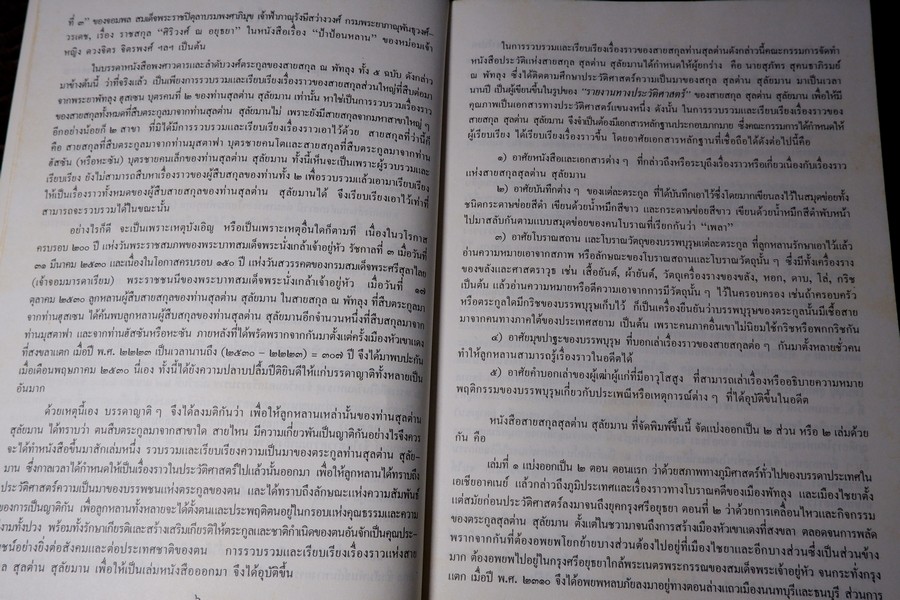 ที่ ๓" ของจอมพล สมเด็จพระราชปิตุลาบรมพงศาภิมุข เจ้าฟ้าภาณุรังษีสว่างวงศ์ กรมพระยาภาณุพันธุวงศ์-
วรเดช, เรื่อง ราชสกุล "ศิริวงศ์ ณ อยุธยา" ในหนังสือเรื่อง "ป้าป้อนหลาน" ของหม่อมเจ้า
หญิง ดวงจิตร จิตรพงศ์ ฯลฯ เป็นต้น
ในบรรดาหนังสือพงศาวดารและลำดับวงศ์ตระกูลของสายสกุล ณ พัทลุง ทั้ง ๕ ฉบับ ดังกล่าว
มาข้างต้นนี้ ว่าที่จริงแล้ว เป็นเพียงการรวบรวมและเรียบเรียงเรื่องราวของสายสกุลส่วนใหญ่ที่สืบต่อมา
จากพระยาพัทลุง ฮุสเซน บุตรคนที่ ๒ ของท่านสุลต่าน สุลัยมาน เท่านั้น หาใช่เป็นการรวบรวมเรื่องราว
ของสายสกุลทั้งหมดที่สืบตระกูลมาจากท่านสุลต่าน สุลัยมานไม่ เพราะยังมีสายสกุลจากมหาสาขาใหญ่ ๆ
อีกอย่างน้อยก็ ๒ สาขา ที่มิได้มีการรวบรวมและเรียบเรียงเรื่องราวเอาไว้ด้วย สายสกุลที่ว่านี้ก็
คือ สายสกุลที่สืบตระกูลมาจากท่านมุสตาฟา บุตรชายคนโตและสายสกุลที่สืบตระกูลมาจากท่าน
ฮัสซัน (หรือหะซัน) บุตรชายคนเล็กของท่านสุลต่าน สุลัยมาน ทั้งนี้เห็นจะเป็นเพราะผู้รวบรวมและ
เรียบเรียง ยังไม่สามารถสืบหาเรื่องราวของผู้สืบสายสกุลของท่านทั้ง ๒ เพื่อรวบรวมแล้วเอามาเรียบเรียง
ให้เป็นเรื่องราวทั้งหมดของผู้สืบสายสกุลของท่านสุลต่าน สุลัยมานได้ จึงเรียบเรียงเอาไว้เท่าที่
สามารถจะรวบรวมได้ในขณะนั้น
อย่างไรก็ดี จะเป็นเพราะเหตุบังเอิญ หรือเป็นเพราะเหตุอื่นใดก็ตามที เนื่องในวโรกาส
ครบรอบ ๒๐๐ ปี แห่งวันพระราชสมภพของพระบาทสมเด็จพระนั่งเกล้าเจ้าอยู่หัว รัชกาลที่ ๓ เมื่อวันที่
๓๑ มีนาคม ๒๕๓๐ และเนื่องในโอกาสครบรอบ ๑๕๐ ปี แห่งวันสวรรคตของกรมสมเด็จพระศรีสุลาไลย
(เจ้าจอมมารดาเรียม) พระราชชนนีของพระบาทสมเด็จพระนั่งเกล้าเจ้าอยู่หัว เมื่อวันที่ ๑๗
ตุลาคม ๒๕๓๐ ลูกหลานผู้สืบสายสกุลของท่านสุลต่าน สุลัยมาน ในสายสกุล ณ พัทลุง ที่สืบตระกูลมา
จากท่านฮุสเซน ได้ค้นพบลูกหลานผู้สืบสายสกุลของท่านสุลต่าน สุลัยมานอีกจำนวนหนึ่งที่สืบสกุลมาจาก
ท่านมุสตาฟา และจากท่านฮัสซันหรือหะซัน ภายหลังที่ได้พรัดพรากจากกันมาตั้งแต่ครั้งเมืองหัวเขาแดง
ที่สงขลาแตก เมื่อปี พ.ศ. ๒๒๒๓ เป็นเวลานานถึง (๒๕๓๐ - ๒๒๒๓) = ๓๐๗ ปี จึงได้มาพบปะกัน
เมื่อเดือนพฤษภาคม ๒๕๓๐ นี่เอง ทั้งนี้ได้ยังความปลาบปลื้มปีติยินดีให้แก่บรรดาญาติทั้งหลายเป็น
อันมาก
ด้วยเหตุนี้เอง บรรดาญาติ ๆ จึงได้ลงมติกันว่า เพื่อให้ลูกหลานเหล่านั้นของท่านสุลต่าน
สุลัยมาน ได้ทราบว่า ตนสืบตระกูลมาจากสาขาใด สายไหน มีความเกี่ยวพันเป็นญาติกันอย่างไรจึงควร
จะได้ทำหนังสือขึ้นมาสักเล่มหนึ่ง รวบรวมและเรียบเรียงความเป็นมาของตระกูลท่านสุลต่าน สุลัย-
มาน ซึ่งกาลเวลาได้กำหนดให้เป็นเรื่องราวในประวัติศาสตร์ไปแล้วนั้นออกมา เพื่อให้ลูกหลานได้ทราบถึง
ประวัติศาสตร์ความเป็นมาของบรรพชนแห่งตระกูลของตน และได้ทราบถึงลักษณะแห่งความสัมพันธ์
ของการเป็นญาติกัน เพื่อลูกหลานทั้งหลายจะได้ตั้งตนและประพฤติตนอยู่ในกรอบแห่งคุณธรรมและความ
งามทั้งปวง พร้อมทั้งรักษาเกียรติและสร้างเสริมเกียรติให้ตระกูลและชาติกำเนิดของตนอันจักเป็นคุณประ-
ชน์อย่างยิ่งต่อสังคมและต่อประเทศชาติของตน การรวบรวมและเรียบเรียงเรื่องราวแห่งสาย
ล สุลต่าน สุลัยมาน เพื่อให้เป็นเล่มหนังสือออกมา จึงได้อุบัติขึ้น
ในการรวบรวมและเรียบเรียงเรื่องราวของสายสกุลท่านสุลต่านดังกล่าวนี้คณะกรรมการจัดทำ
หนังสือประวัติแห่งสายสกุล สุลต่าน สุลัยมานได้กำหนดให้ผู้ยกร่าง คือ นายสุภัทร สุคนธาภิรมย์
ณ พัทลุง ซึ่งได้ติดตามศึกษาประวัติศาสตร์ความเป็นมาของสกุล สุลต่าน สุลัยมาน มาเป็นเวลา
นานปี เป็นผู้เขียนขึ้นในรูปของ "รายงานทางประวัติศาสตร์" ของสายสกุล สุลต่าน สุลัยมาน เพื่อให้มี
คุณภาพเป็นเอกสารทางประวัติศาสตร์แขนงหนึ่ง ดังนั้น ในการรวบรวมและเรียบเรียงเรื่องราวของ
สายสกุล สุลต่าน สุลัยมาน จึงจำเป็นต้องมีเอกสารหลักฐานประกอบมากมาย ซึ่งคณะกรรมการได้กำหนดให้
ผู้เรียบเรียง ได้เรียบเรียงเรื่องราวขึ้น โดยอาศัยเอกสารหลักฐานที่เชื่อถือได้ดังต่อไปนี้คือ
๑) อาศัยหนังสือและเอกสารต่าง ๆ ที่กล่าวถึงหรือระบุถึงเรื่องราวหรือเกี่ยวเนื่องกับเรื่องราว
แห่งสายสกุลสุลต่าน สุลัยมาน
๒) อาศัยบันทึกต่าง ๆ ของแต่ละตระกูล ที่ได้บันทึกเอาไว้ซึ่งโดยมากเขียนลงไว้ในสมุดข่อยทั้ง
ชนิดกระดาษข่อยสีดำ เขียนด้วยน้ำหมึกสีขาว และกระดาษข่อยสีขาว เขียนด้วยน้ำหมึกสีดำพับหน้า
ไปมาสลับกันตามแบบสมุดข่อยของคนโบราณที่เรียกกันว่า "เพลา"
๓) อาศัยโบราณสถาน และโบราณวัตถุของบรรพบุรุษแต่ละตระกูล ที่ลูกหลานรักษาเอาไว้แล้ว
อ่านความหมายเอาจากสภาพ หรือลักษณะของโบราณสถานและโบราณวัตถุนั้น ๆ ซึ่งมีทั้งเครื่องราง
ของขลังและศาสตราวุธ เช่น เสื้อยันต์, ผ้ายันต์, วัตถุเครื่องรางของขลัง, หอก, ดาบ, โล่, กริช
เป็นต้น แล้วอ่านความหมายหรือตีความเอาจากการมีวัตถุนั้น ๆ ไว้ในครอบครอง เช่นถ้าครอบครัว
หรือตระกูลใดมีกริชของบรรพบุรุษเก็บไว้ ก็เป็นเครื่องยืนยันว่าบรรพบุรุษของตระกูลนั้นมีเชื้อสาย
มาจากคนทางภาคใต้ของประเทศสยาม เป็นต้น เพราะคนภาคอื่นเขาไม่นิยมใช้กริชหรือพกกริชกัน
๔) อาศัยมุขปาฐะของบรรพบุรุษ ที่บอกเล่าเรื่องราวของสายสกุลต่อ ๆ กันมาตั้งหลายชั่วคน
ทำให้ลูกหลานสามารถรู้เรื่องราวในอดีตได้
๕) อาศัยคำบอกเล่าของผู้เฒ่าผู้แก่ที่มีอาวุโสสูง ที่สามารถเล่าเรื่องหรืออธิบายความหมาย
พฤติกรรมของบรรพบุรุษเกี่ยวกับประเพณีหรือเหตุการณ์ต่าง ๆ ที่ได้อุบัติขึ้นในอดีต
หนังสือสายสกุลสุลต่าน สุลัยมาน ที่จัดพิมพ์ขึ้นนี้ จัดแบ่งออกเป็น ๒ ส่วน หรือ ๒ เล่มด้วย
กัน คือ
เล่มที่ ๑ แบ่งออกเป็น ๒ ตอน ตอนแรก ว่าด้วยสภาพทางภูมิศาสตร์ทั่วไปของบรรดาประเทศใน
เอเชียอาคเนย์ แล้วกล่าวถึงภูมิประเทศและเรื่องราวทางโบราณคดีของเมืองพัทลุง และเมืองไชยาตั้ง
แต่สมัยก่อนประวัติศาสตร์ลงมาจนถึงยุคกรุงศรีอยุธยา ตอนที่ ๒ ว่าด้วยการเคลื่อนไหวและกิจกรรม
ของตระกูลสุลต่าน สุลัยมาน ตั้งแต่ในชวามาจนถึงการสร้างเมืองหัวเขาแดงที่สงขลา ตลอดจนการพลัด
พรากจากกันที่ต้องอพยพโยกย้ายบางส่วนต้องไปอยู่ที่เมืองไชยาและอีกบางส่วนซึ่งเป็นส่วนข้าง
มาก ต้องอพยพไปอยู่ในกรุงศรีอยุธยาใกล้พระเนตรพระกรรณของสมเด็จพระเจ้าอยู่หัว จนกระทั่งกรุง
แตก เมื่อปี พ.ศ. ๒๓๑๐ จึงได้อพยพหลบภัยลงมาอยู่ทางตอนล่างแถวเมืองนนทบุรีและธนบุรี ส่วนการ